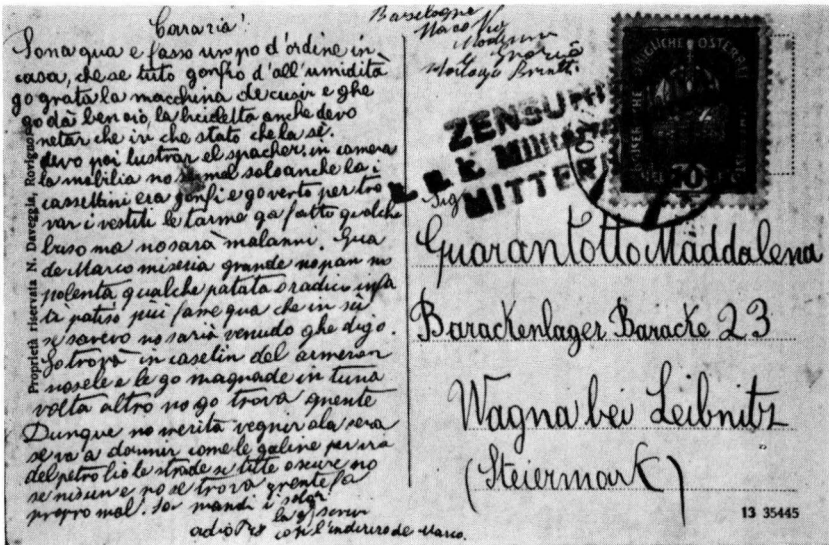 Cara zia!
Sona qua e fasso un po d'ordine in
casa, che se tuto gonfio d'all'umidità
go grata la macchina de cusir e ghe
go dà ben oio, la bicicletta anche devo
netar che in che stato che la sè.
devo poi lustrar el spacher. in camera
la mobilia no se mal solo anche la i
cassettini era gonfi e go verto per tro
var i vestiti le tarme ga fatto qualche
buso ma no sarà malanni. Qua
de Marco miseria grande no pan no
polenta qualche patata o radicio insa
ta patiso più fame qua che in sù
se savevo no saria venudo ghe digo.
Go trovà in casetin del armeron
nosele e le go magnade in tuna
volta altro no go trova gnente
Dunque no merita vegnir ala sera
se va a dormir come le galine per via
del petrolio le strade se tutte oscure no
se nisun e no se trova gnente fa
propro mal. 
adio
con l'indirizo de Marco.
Proprietà riservata N. Daveggia, Rovigno
ZENSURI
K. u. k. Militär
MITTER
KAISERLICHE KÖNIGLICHE ÖSTERR
10
Sig
Guarantotto Maddalena
Barackenlager Baracke 23
Wagna bei Leibnitz
(Steiermark)
13 35445